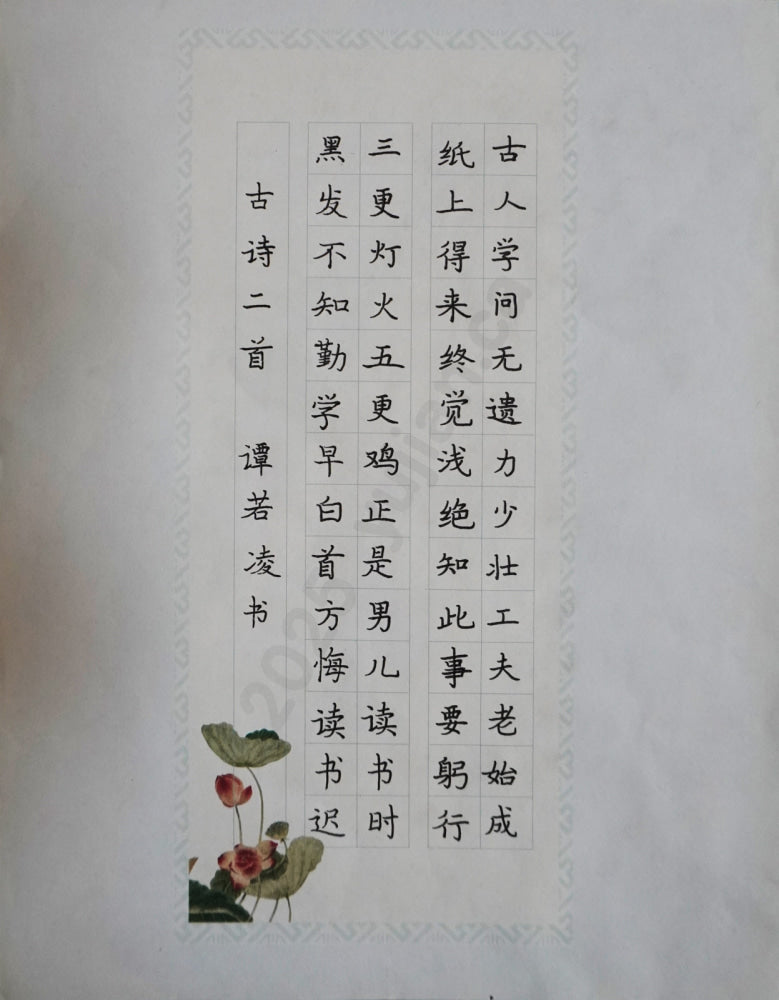 古人学问无遗力少壮工夫老始成
纸上得来终觉浅绝知此事要躬行
三更灯火五更鸡正是男儿读书时
黑发不知勤学早白首方悔读书迟
古诗二首 谭若凌书